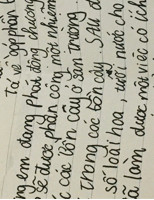 Tả về góp phần
ng em đang phát động chương
sẽ được phân công một nhiệm
c các Bồn cây ở sân trường
trong các bồn cây. Sau đ
số loài hoa, tưới nước cho
ã làm được một việc có ích